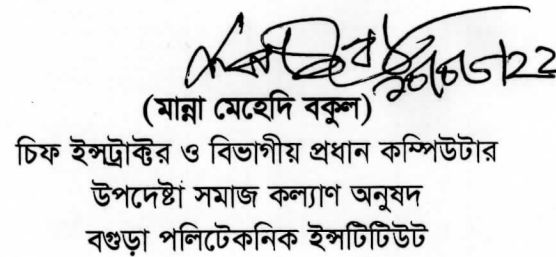 (মান্না মেহেদি বকুল)
চিফ ইন্সট্রাক্টর ও বিভাগীয় প্রধান কম্পিউটার
উপদেষ্টা সমাজ কল্যাণ অনুষদ
বগুড়া পলিটেকনিক ইন্সটিটিউট